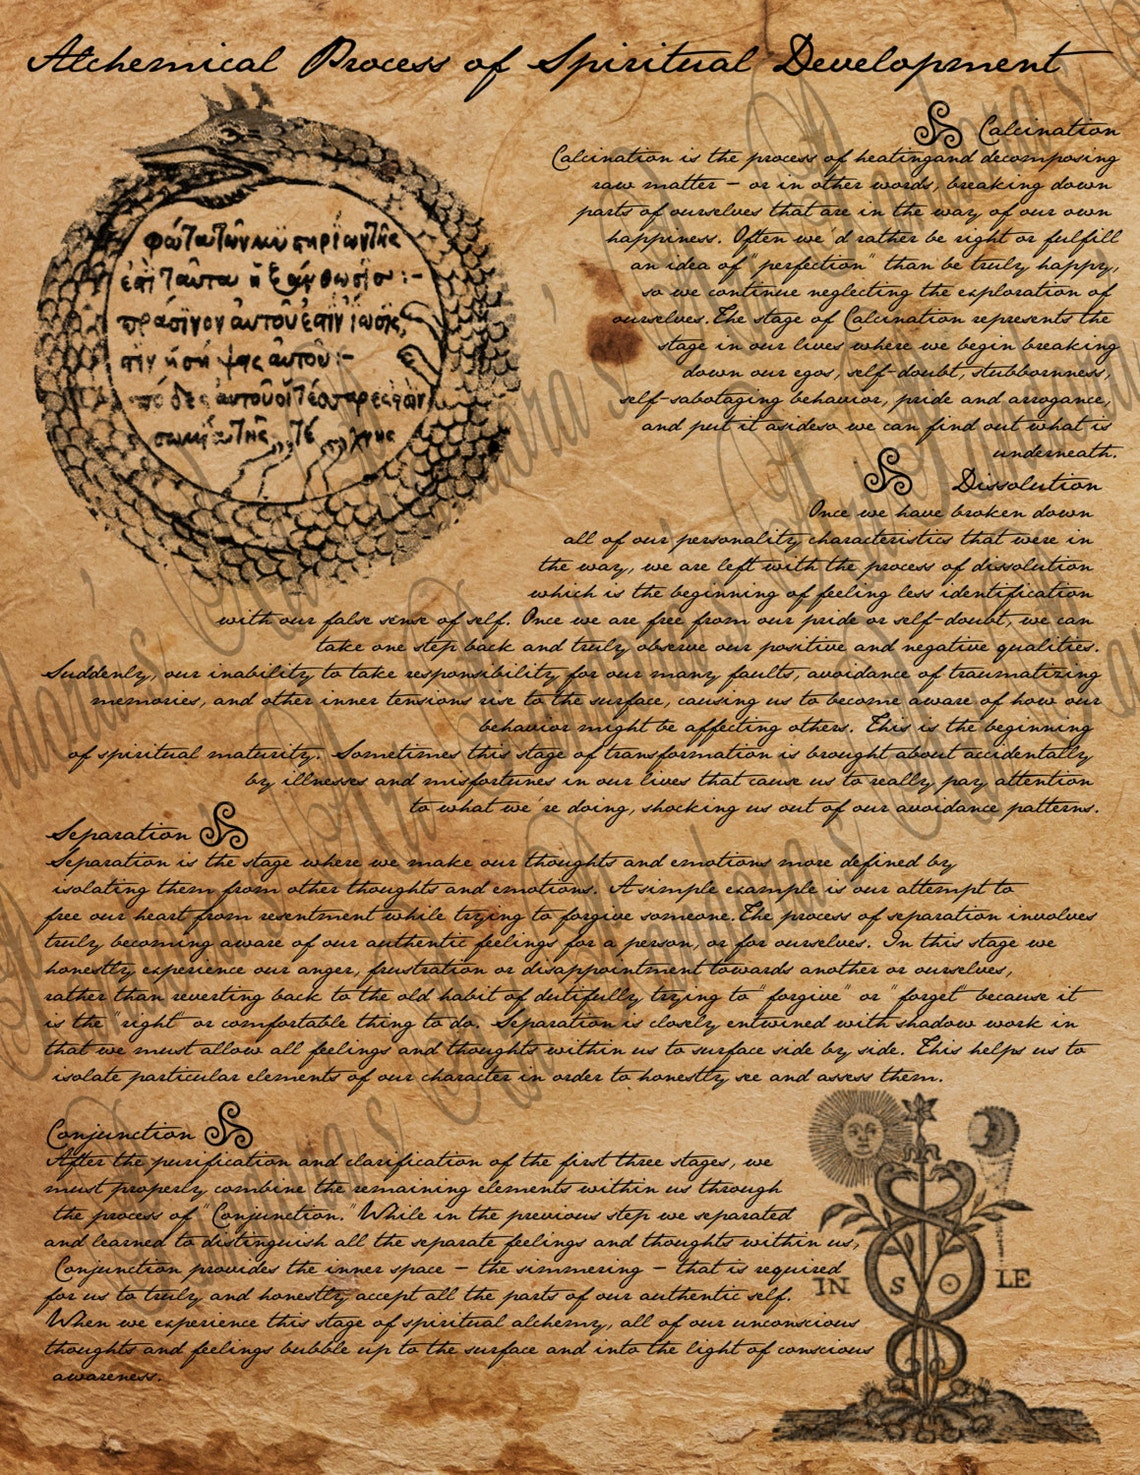 Alchemical Process of Spiritual Development
Calcination
Calcination is the process of heatingand decomposing
raw matter – or in other words, breaking down
parts of ourselves that are in the way of our own
happiness. Often we'd rather be right or fulfill
an idea of "perfection" than be truly happy,
so we continue neglecting the exploration of
ourselves.The stage of Calcination represents the
stage in our lives where we begin breaking
down our egos, self-doubt, stubbornness,
self-sabotaging behavior, pride and arrogance,
and put it asideso we can find out what is
underneath.
Dissolution
Once we have broken down
all of our personality characteristics that were in
the way, we are left with the process of dissolution
which is the beginning of feeling less identification
with our false sense of self. Once we are free from our pride or self-doubt, we can
take one step back and truly observe our positive and negative qualities.
Suddenly, our inability to take responsibility for our many faults, avoidance of traumatizing
memories, and other inner tensions rise to the surface, causing us to become aware of how our
behavior might be affecting others. This is the beginning
of spiritual maturity. Sometimes this stage of transformation is brought about accidentally
by illnesses and misfortunes in our lives that cause us to really pay attention
to what we're doing, shocking us out of our avoidance patterns.
Separation
Separation is the stage where we make our thoughts and emotions more defined by
isolating them from other thoughts and emotions. A simple example is our attempt to
free our heart from resentment while trying to forgive someone.The process of separation involves
truly becoming aware of our authentic feelings for a person, or for ourselves. In this stage we
honestly experience our anger, frustration or disappointment towards another or ourselves,
rather than reverting back to the old habit of dutifully trying to "forgive" or "forget" because it
is the "right" or comfortable thing to do. Separation is closely entwined with shadow work in
that we must allow all feelings and thoughts within us to surface side by side. This helps us to
isolate particular elements of our character in order to honestly see and assess them.
Conjunction
After the purification and clarification of the first three stages, we
must properly combine the remaining elements within us through
the process of "Conjunction." While in the previous step we separated
and learned to distinguish all the separate feelings and thoughts within us,
Conjunction provides the inner space – the simmering – that is required
for us to truly and honestly accept all the parts of our authentic self.
When we experience this stage of spiritual alchemy, all of our unconscious
thoughts and feelings bubble up to the surface and into the light of conscious
awareness.
IN S ⊙ LE